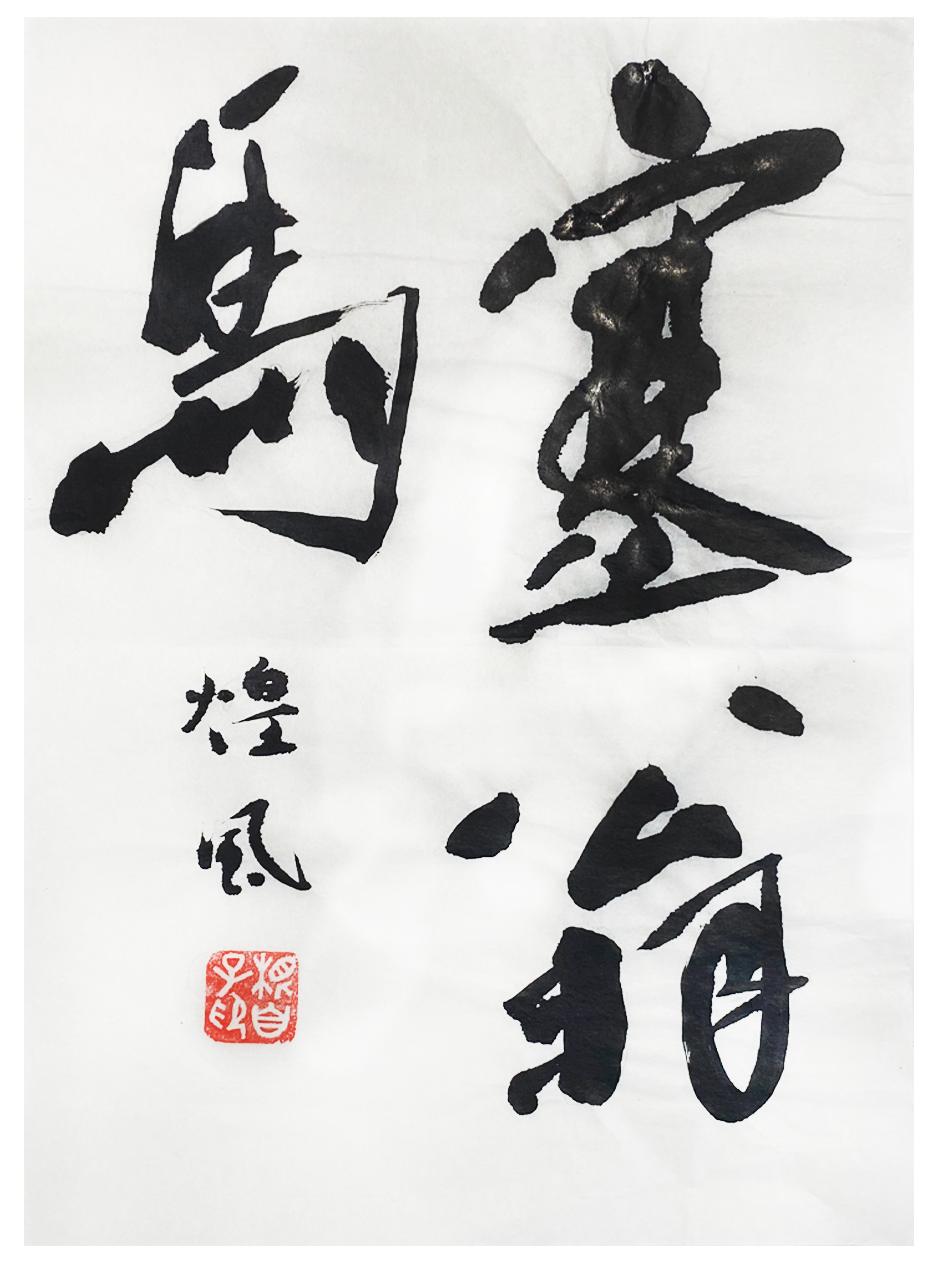 塞翁
馬
煌風